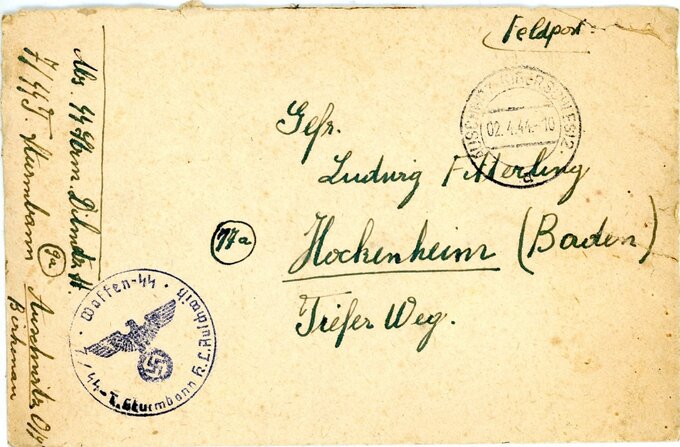 Feldpost
AUSCHWITZ (OBERSCHLESIEN)
02.4.44.-10
Gefr.
Ludwig Fitterling
17a
Hockenheim (Baden)
Tiefer Weg.
Abs. SS Strm. H.
7/SS T. Sturmbann Auschwitz O/S
9a
Birkenau
Waffen-SS
7./SS-T. Sturmbann K.L. Auschwitz